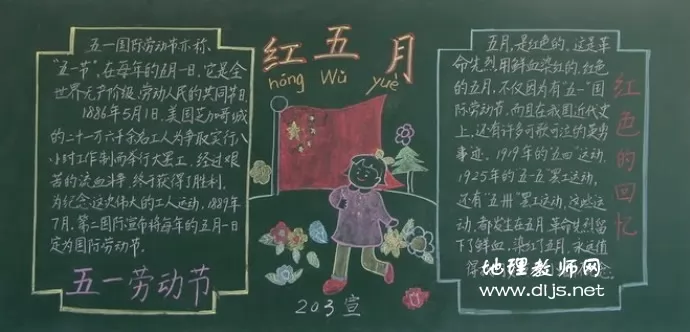 五一国际劳动节亦称
“五一节”，在每年的五月一日。它是全
世界无产阶级、劳动人民的共同节日。
1886年5月1日，美国芝加哥城
的二十一万六千余名工人为争取实行八
小时工作制而举行大罢工，经过艰
苦的流血斗争，终于获得了胜利。
为纪念这次伟大的工人运动，1889年
7月，第二国际宣布将每年的五月一日
定为国际劳动节。
五一劳动节
红五月
hóng Wǔ yuè
203宣
五月，是红色的，这是革
命先烈用鲜血染红的，红色
的五月，不仅因为有“五一”国
际劳动节，而且在我国近代史
上，还有许多可歌可泣的英勇
事迹。1919年的“五四”运动，
1925年的五一五罢工运动，
还有“五卅”罢工运动，这些运
动，都发生在五月，革命先烈留
下了鲜血，染红了五月，永远值
得
念
红色的回忆
地理教师网
www.dljs.net